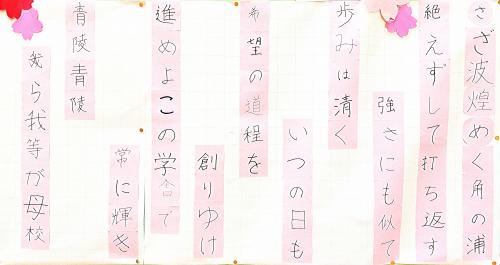 さざ波煌めく角の浦
絶えずして打ち返す
強さにも似て
歩みは清く
いつの日も
希望の道程を
創りゆけ
進めよこの学舎で
常に輝き
青陵青陵
我ら我等が母校